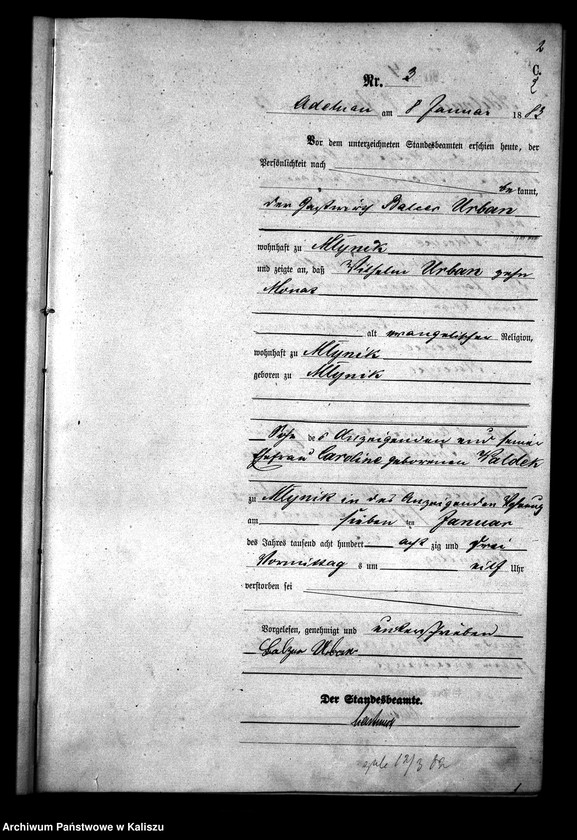 2
C.
2
Nr. 3
Adelnau am 8 Januar 1883
Vor dem unterzeichneten Standesbeamten erschien heute, der
Persönlichkeit nach
bekannt,
der Gastwirth Urban
wohnhaft zu Mlynik
und zeigte an, daß Wilhelm Urban zehn
Monat
alt evangelischer Religion,
wohnhaft zu Mlynik
geboren zu Mlynik
Sohn des Anzeigenden und seiner
Ehefrau Caroline geborenen Valdek
zu Mlynik in des Anzeigenden
am sieben ten Januar
des Jahres tausend acht hundert achtzig und drei
Vormittags um eilf Uhr
verstorben sei
Vorgelesen, genehmigt und unterschrieben
Balzer Urban
Der Standesbeamte.
12/3 
Archiwum Państwowe w Kaliszu